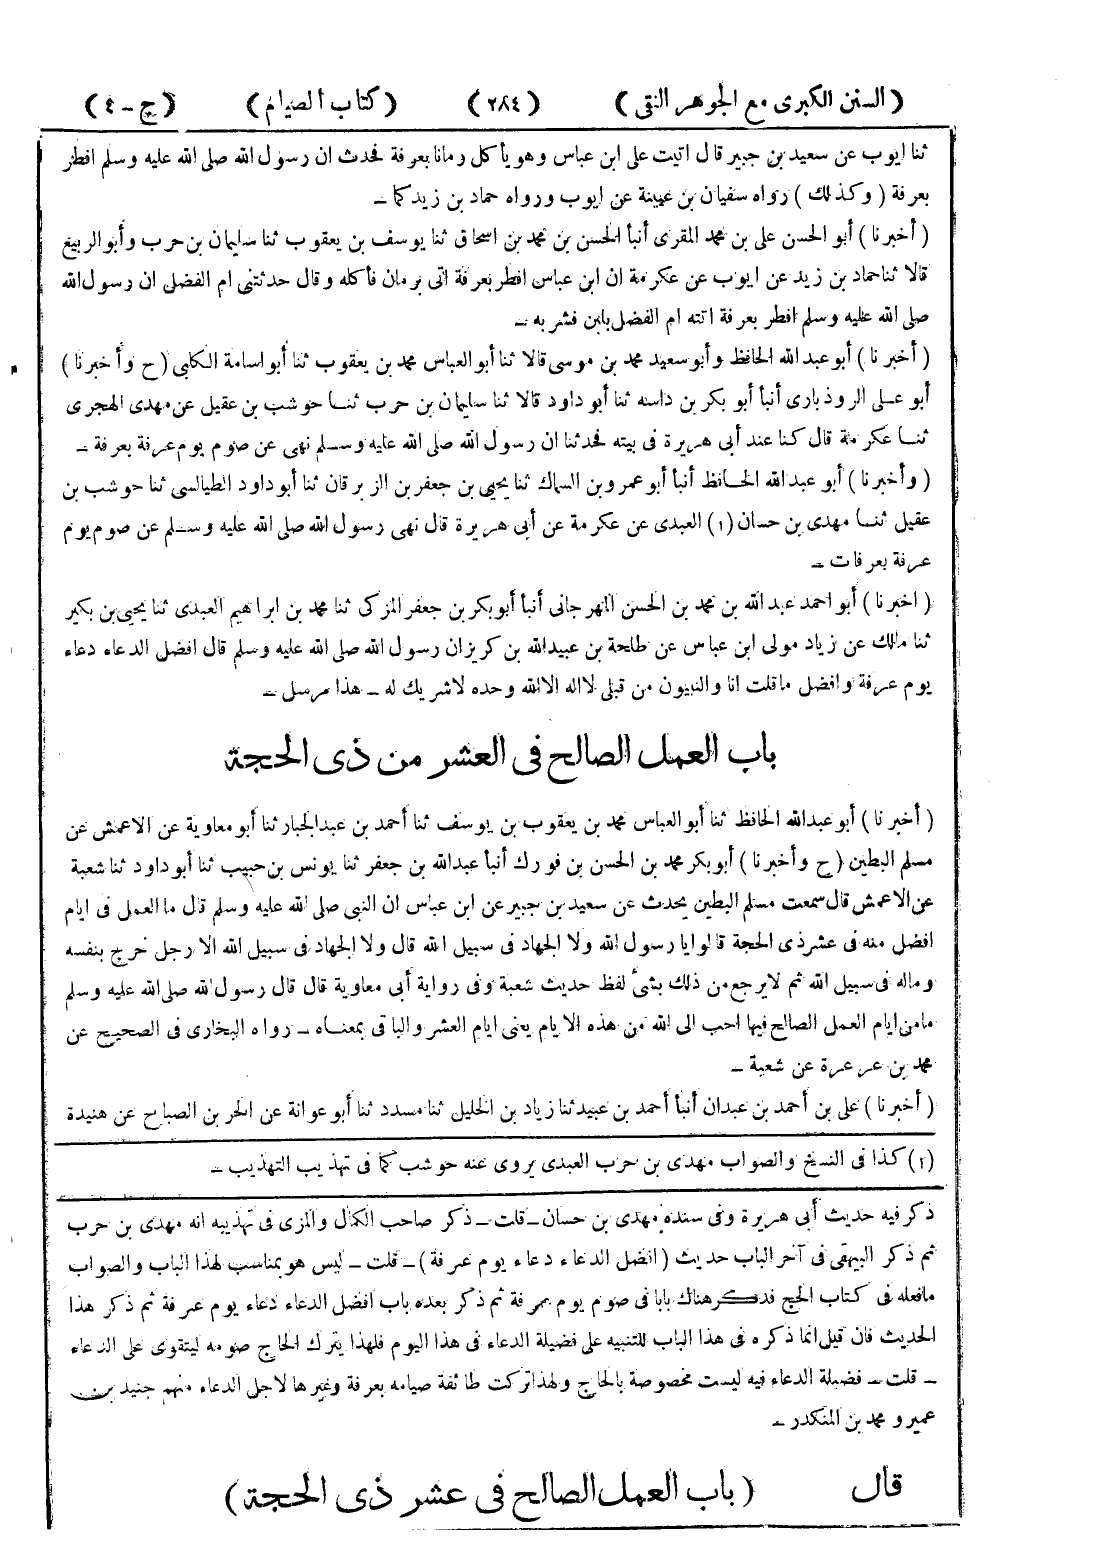 (السنن الكبرى مع الجوهر النقى) (٢٨٤) (كتاب الصيام) (ج - ٤)
ثنا ايوب عن سعيد بن جبير قال اتيت على ابن عباس وهو يأكل رمانا بعرفة فحدث ان رسول الله صلى الله عليه وسلم افطر
بعرفة (وكذلك) رواه سفيان بن عيينة عن ايوب ورواه حماد بن زيد كما -
(أخبرنا) أبو الحسن على بن محمد المقرى أنبأ الحسن بن محمد بن اسحاق ثنا يوسف بن يعقوب ثنا سليمان بن حرب وأبو الربيع
قالا ثنا حماد بن زيد عن ايوب عن عكرمة ان ابن عباس افطر بعرفة اتى برمان فأكله وقال حدثتنى ام الفضل ان رسول الله
صلى الله عليه وسلم افطر بعرفة اتته ام الفضل بلبن فشربه -
(أخبرنا) أبو عبد الله الحافظ وأبو سعيد محمد بن موسى قالا ثنا أبو العباس محمد بن يعقوب ثنا أبو اسامة الكلبى (ح وأخبرنا)
أبو على الروذبارى أنبأ أبو بكر بن داسه ثنا أبو داود قالا ثنا سليمان بن حرب ثنا حوشب بن عقيل عن مهدى الهجرى
ثنا عكرمة قال كنا عند أبى هريرة فى بيته فحدثنا ان رسول الله صلى الله عليه وسلم نهى عن صوم يوم عرفة بعرفة -
(وأخبرنا) أبو عبد الله الحافظ أنبأ أبو عمرو بن السماك ثنا يحيى بن جعفر بن الزبرقان ثنا أبو داود الطيالسى ثنا حوشب بن
عقيل ثنا مهدى بن حسان (١) العبدى عن عكرمة عن أبى هريرة قال نهى رسول الله صلى الله عليه وسلم عن صوم يوم
عرفة بعرفات -
(اخبرنا) أبو احمد عبد الله بن محمد بن الحسن المهرجانى أنبأ أبو بكر بن جعفر المزكى ثنا محمد بن ابراهيم العبدى ثنا يحيى بن بكير
ثنا مالك عن زياد مولى ابن عباس عن طلحة بن عبيد الله بن كريز ان رسول الله صلى الله عليه وسلم قال افضل الدعاء دعاء
يوم عرفة وافضل ما قلت انا والنبيون من قبلى لا اله الا الله وحده لا شريك له - هذا مرسل -
باب العمل الصالح فى العشر من ذى الحجة
(أخبرنا) أبو عبد الله الحافظ ثنا أبو العباس محمد بن يعقوب بن يوسف ثنا أحمد بن عبد الجبار ثنا أبو معاوية عن الاعمش عن
مسلم البطين (ح وأخبرنا) أبو بكر محمد بن الحسن بن فورك أنبأ عبد الله بن جعفر ثنا يونس بن حبيب ثنا أبو داود ثنا شعبة
عن الاعمش قال سمعت مسلم البطين يحدث عن سعيد بن جبير عن ابن عباس ان النبى صلى الله عليه وسلم قال ما العمل فى ايام
افضل منه فى عشر ذى الحجة قالوا يا رسول الله ولا الجهاد فى سبيل الله قال ولا الجهاد فى سبيل الله الا رجل خرج بنفسه
وماله فى سبيل الله ثم لا يرجع من ذلك بشئ لفظ حديث شعبة وفى رواية أبى معاوية قال قال رسول الله صلى الله عليه وسلم
ما من ايام العمل الصالح فيها احب الى الله من هذه الايام يعنى ايام العشر والباقى بمعناه - رواه البخارى فى الصحيح عن
محمد بن عرعرة عن شعبة -
(أخبرنا) على بن أحمد بن عبدان أنبأ أحمد بن عبيد ثنا زياد بن الخليل ثنا مسدد ثنا أبو عوانة عن الحر بن الصباح عن هنيدة
(١) كذا فى النسخ والصواب مهدى بن حرب العبدى يروى عنه حوشب كما فى تهذيب التهذيب -
ذكر فيه حديث أبى هريرة وفى سنده مهدى بن حسان - قلت - ذكر صاحب الكمال والمزى فى تهذيبه انه مهدى بن حرب
ثم ذكر البيهقى فى آخر الباب حديث (افضل الدعاء دعاء يوم عرفة) - قلت - ليس هو بمناسب لهذا الباب والصواب
ما فعله فى كتاب الحج فذكر هناك بابا فى صوم يوم عرفة ثم ذكر بعده باب افضل الدعاء دعاء يوم عرفة ثم ذكر هذا
الحديث فان قيل انما ذكره فى هذا الباب للتنبيه على فضيلة الدعاء فى هذا اليوم فلهذا يترك الحاج صومه ليتقوى على الدعاء
- قلت - فضيلة الدعاء فيه ليست مخصوصة بالحاج ولهذا تركت طائفة صيامه بعرفة وغيرها لاجل الدعاء منهم جنيد بن
عمير و محمد بن المنكدر -
قال (باب العمل الصالح فى عشر ذى الحجة)